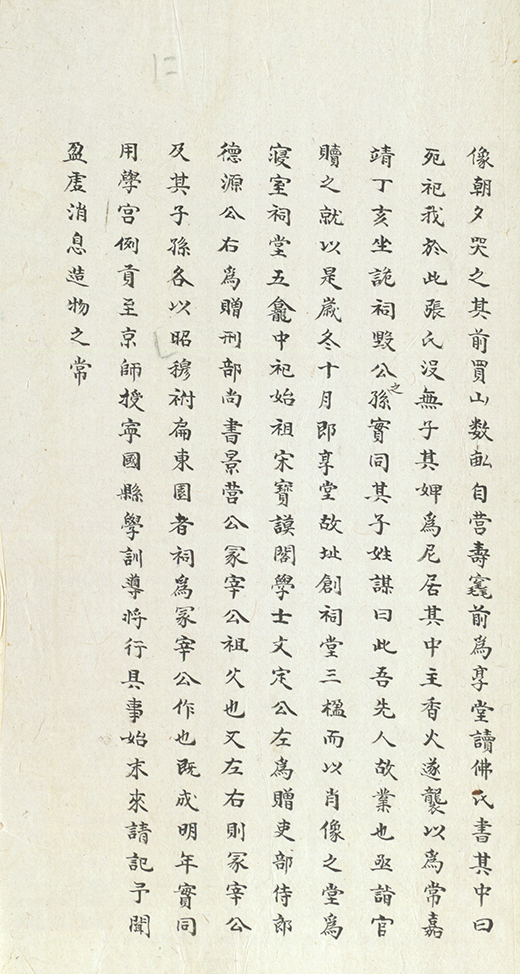 像朝夕哭之其前買山数畝自营壽竁前為享堂讀佛氏書其中曰
死祀我於此張氏没無子其婢為尼居其中主香火遂襲以為常嘉
靖丁亥坐詭祠毀公之孫實同其子姓謀曰此吾先人故業也亟諧官
贖之就以是歲冬十月即享堂故址創祠堂三楹而以肖像之堂為
寢室祠堂五龕中祀始祖宋寶謨閣學士文定公左為贈吏部侍郎
德源公右為贈刑部尚書景营公冢宰公祖父也又左右則冢宰公
及其子孫各以昭穆祔扁東園者祠為冢宰公作也既成明年實同
用學宫例貢至京師授寧國縣學訓導将行具事始末來請記予聞
盈虚消息造物之常